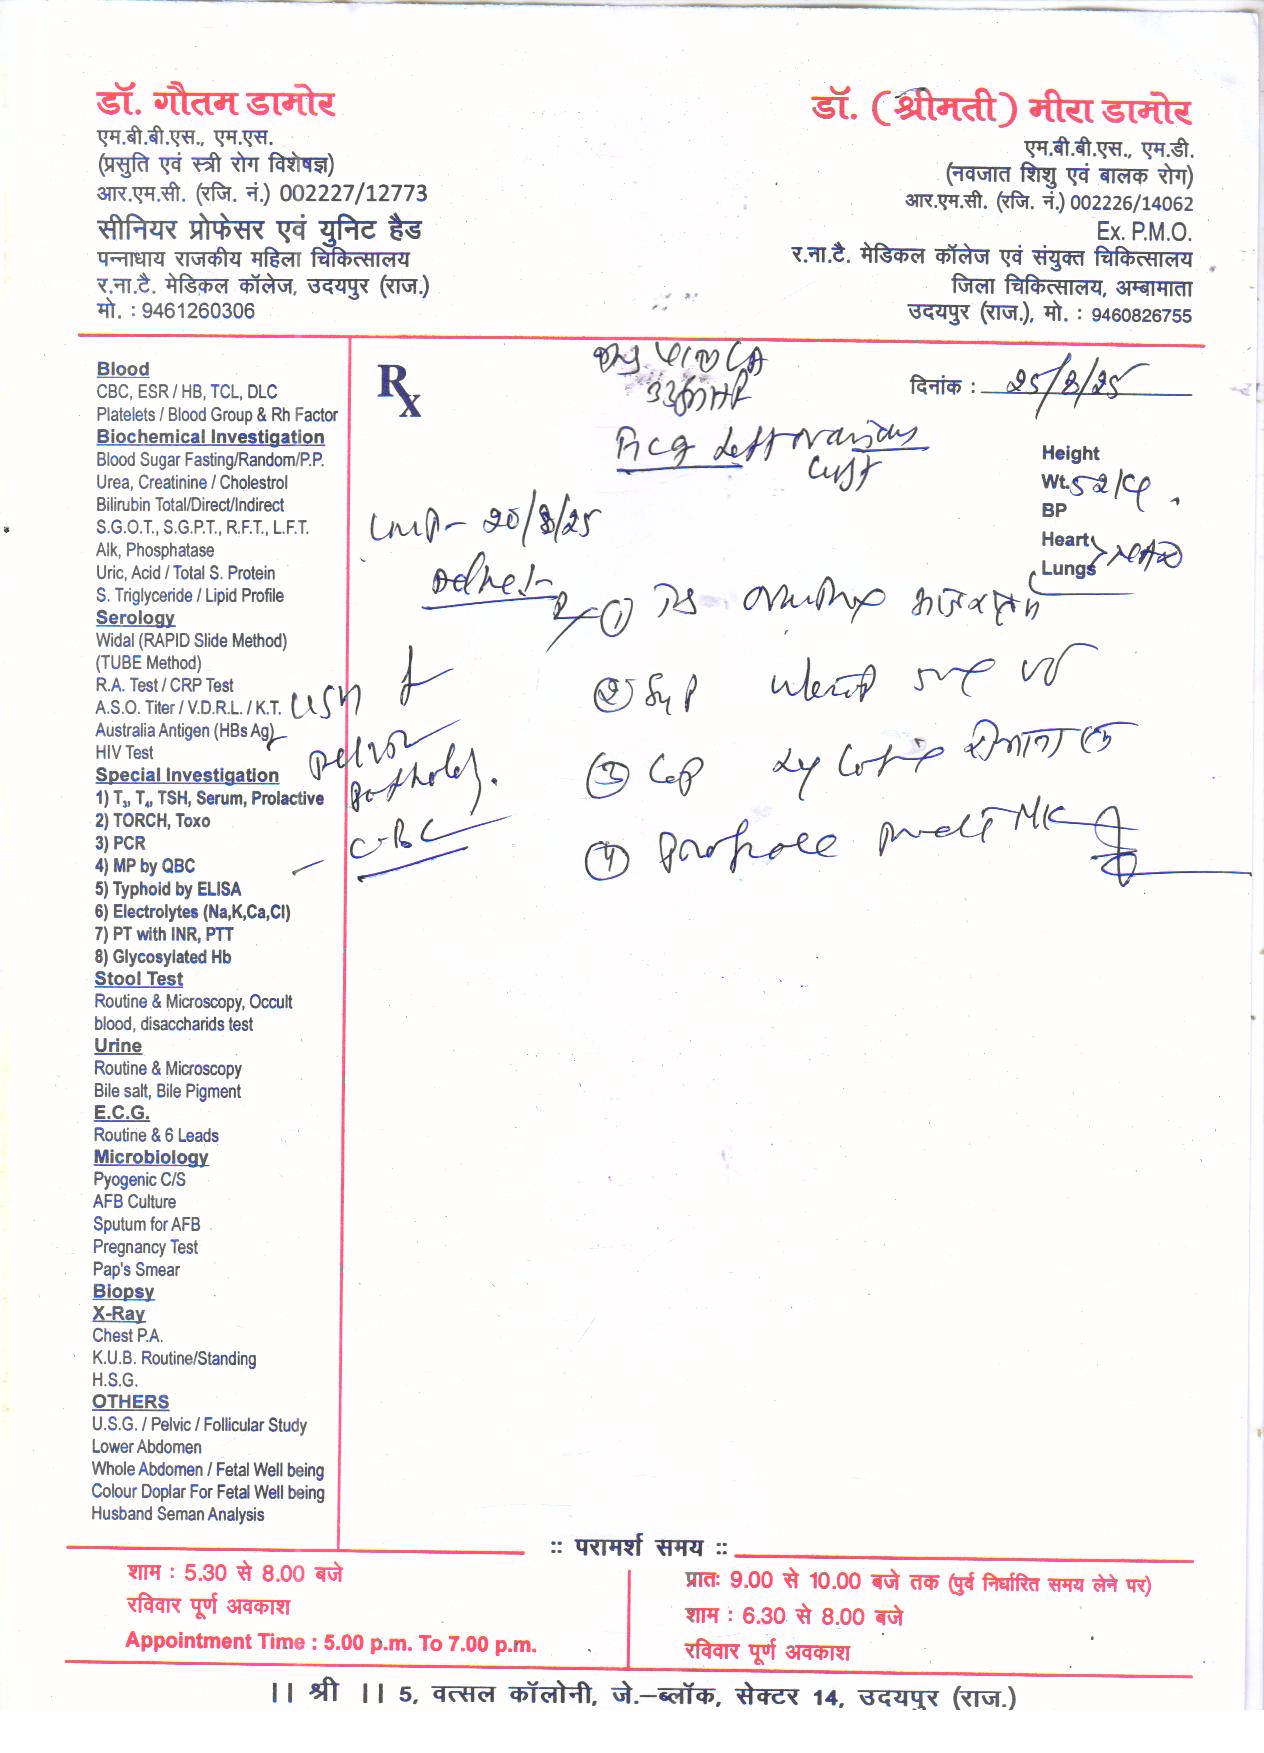 डॉ. गौतम डामोर
एम.बी.बी.एस., एम.एस.
(प्रसुति एवं स्त्री रोग विशेषज्ञ)
आर.एम.सी. (रजि. नं.) 002227/12773
सीनियर प्रोफेसर एवं युनिट हैड
पन्नाधाय राजकीय महिला चिकित्सालय
र.ना.टै. मेडिकल कॉलेज, उदयपुर (राज.)
मो. : 9461260306
डॉ. (श्रीमती) मीरा डामोर
एम.बी.बी.एस., एम.डी.
(नवजात शिशु एवं बालक रोग)
आर.एम.सी. (रजि. नं.) 002226/14062
Ex. P.M.O.
र.ना.टै. मेडिकल कॉलेज एवं संयुक्त चिकित्सालय
जिला चिकित्सालय, अम्बामाता
उदयपुर (राज.), मो. : 9460826755
Blood
CBC, ESR / HB, TCL, DLC
Platelets / Blood Group & Rh Factor
Biochemical Investigation
Blood Sugar Fasting/Random/P.P.
Urea, Creatinine / Cholestrol
Bilirubin Total/Direct/Indirect
S.G.O.T., S.G.P.T., R.F.T., L.F.T.
Alk, Phosphatase
Uric, Acid / Total S. Protein
S. Triglyceride / Lipid Profile
Serology
Widal (RAPID Slide Method)
(TUBE Method)
R.A. Test / CRP Test
A.S.O. Titer / V.D.R.L. / K.T.
Australia Antigen (HBs Ag)
HIV Test
Special Investigation
1) T₃, T₄, TSH, Serum, Prolactive
2) TORCH, Toxo
3) PCR
4) MP by QBC
5) Typhoid by ELISA
6) Electrolytes (Na,K,Ca,Cl)
7) PT with INR, PTT
8) Glycosylated Hb
Stool Test
Routine & Microscopy, Occult
blood, disaccharids test
Urine
Routine & Microscopy
Bile salt, Bile Pigment
E.C.G.
Routine & 6 Leads
Microbiology
Pyogenic C/S
AFB Culture
Sputum for AFB
Pregnancy Test
Pap's Smear
Biopsy
X-Ray
Chest P.A.
K.U.B. Routine/Standing
H.S.G.
OTHERS
U.S.G. / Pelvic / Follicular Study
Lower Abdomen
Whole Abdomen / Fetal Well being
Colour Doplar For Fetal Well being
Husband Seman Analysis
Rx
दिनांक : 25/8/25
Left ovarian
cyst
Height
Wt. 52
BP
Heart
Lungs
LMP - 20/8/25
Advice :-
①
② Syp
pelvic
pathology.
③ Cap
CBC
④
:: परामर्श समय ::
शाम : 5.30 से 8.00 बजे
रविवार पूर्ण अवकाश
Appointment Time : 5.00 p.m. To 7.00 p.m.
प्रातः 9.00 से 10.00 बजे तक (पुर्व निर्धारित समय लेने पर)
शाम : 6.30 से 8.00 बजे
रविवार पूर्ण अवकाश
|| श्री || 5, वत्सल कॉलोनी, जे.–ब्लॉक, सेक्टर 14, उदयपुर (राज.)